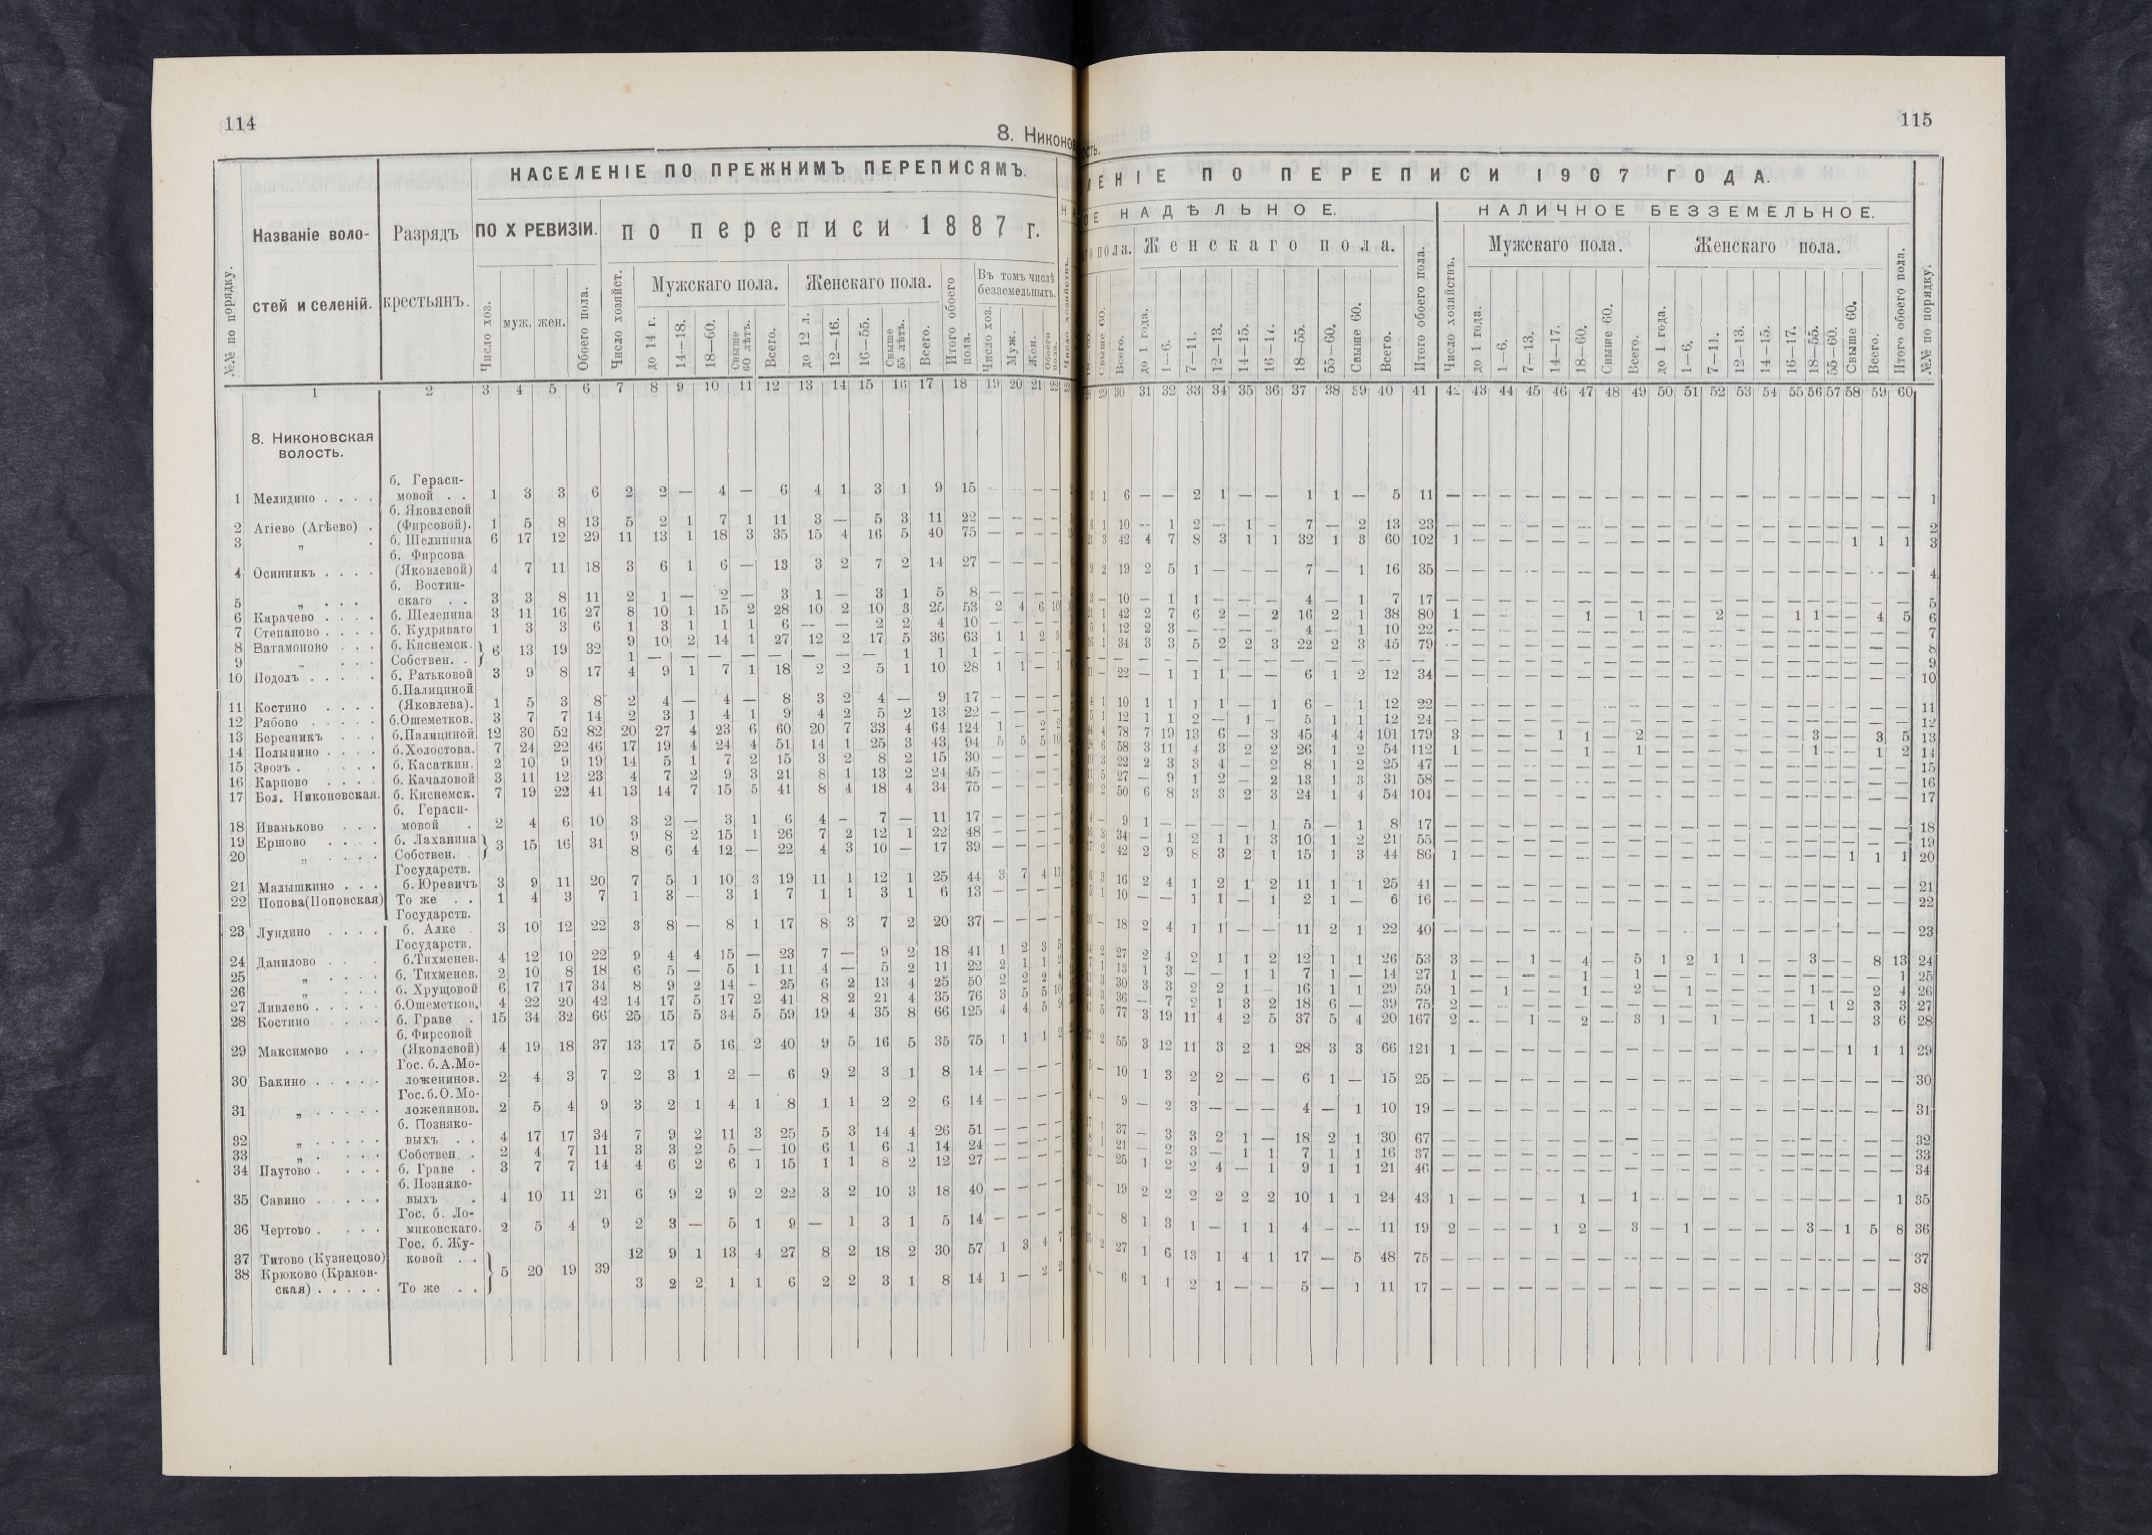 114
8. Никонов
НАСЕЛЕНІЕ ПО ПРЕЖНИМЪ ПЕРЕПИСЯМЪ.
№№ по порядку.
Названіе воло-
стей и селеній.
Разрядъ
крестьянъ.
ПО X РЕВИЗІИ.
по переписи 1887 г.
Число хоз.
муж. жен.
Обоего пола.
Число хозяйст.
Мужскаго пола.
Женскаго пола.
Въ томъ числѣ
безземельныхъ.
до 14 г. 14—18. 18—60. Свыше 60 лѣтъ. Всего.
до 12 л. 12—16. 16—55. Свыше 55 лѣтъ. Всего.
Итого обоего пола.
Число хоз. Муж. Жен. Обоего пола.
1 2 3 4 5 6 7 8 9 10 11 12 13 14 15 16 17 18 19 20 21 22
8. Никоновская
волость.
б. Гераси-
1 Мелидино . . . . мовой . . 1 3 3 6 2 2 — 4 — 6 4 1 3 1 9 15 — — — —
б. Яковлевой
2 Агіево (Агѣево) . (Фирсовой). 1 5 8 13 5 2 1 7 1 11 3 — 5 3 11 22 — — — —
3 „ . б. Шелипина 6 17 12 29 11 13 1 18 3 35 15 4 16 5 40 75 — — — —
б. Фирсова
4 Осинникъ . . . . (Яковлевой) 4 7 11 18 3 6 1 6 — 13 3 2 7 2 14 27 — — — —
б. Востин-
5 „ . . . скаго . . 3 3 8 11 2 1 — 2 — 3 1 — 3 1 5 8 — — — —
6 Карачево . . . . б. Шелепина 3 11 16 27 8 10 1 15 2 28 10 2 10 3 25 53 2 4 6 10
7 Степаново . . . . б. Кудряваго 1 3 3 6 1 3 1 1 1 6 — — 2 2 4 10 — — — —
8 Ватамоново . . . б. Киснемск. } 6 13 19 32 9 10 2 14 1 27 12 2 17 5 36 63 1 1 2 3
9 „ . . . Собствен. . } 1 — — — — — — — — 1 1 1 — — — —
10 Подолъ . . . . . б. Ратьковой 3 9 8 17 4 9 1 7 1 18 2 2 5 1 10 28 1 1 — 1
б.Палициной
11 Костино . . . . (Яковлева). 1 5 3 8 2 4 — 4 — 8 3 2 4 — 9 17 — — — —
12 Рябово . . . . . б.Ошеметков. 3 7 7 14 2 3 1 4 1 9 4 2 5 2 13 22 — — — —
13 Березникъ . . . б.Палициной. 12 30 52 82 20 27 4 23 6 60 20 7 33 4 64 124 1 — 2 2
14 Полынино . . . . б.Холостова. 7 24 22 46 17 19 4 24 4 51 14 1 25 3 43 94 5 5 5 10
15 Звозъ . . . . . б. Касаткин. 2 10 9 19 14 5 1 7 2 15 3 2 8 2 15 30 — — — —
16 Карпово . . . . б. Качаловой 3 11 12 23 4 7 2 9 3 21 8 1 13 2 24 45 — — — —
17 Бол. Никоновская. б. Киснемск. 7 19 22 41 13 14 7 15 5 41 8 4 18 4 34 75 — — — —
б. Гераси-
18 Иваньково . . . мовой . 2 4 6 10 3 2 — 3 1 6 4 — 7 — 11 17 — — — —
19 Ершово . . . . б. Лаханина } 3 15 16 31 9 8 2 15 1 26 7 2 12 1 22 48 — — — —
20 „ . . . . Собствен. . } 8 6 4 12 — 22 4 3 10 — 17 39 — — — —
Государств.
21 Малышкино . . . б. Юревичъ 3 9 11 20 7 5 1 10 3 19 11 1 12 1 25 44 3 7 4 11
22 Попова(Поповская) То же . . 1 4 3 7 1 3 — 3 1 7 1 1 3 1 6 13 — — — —
Государств.
23 Лундино . . . . б. Алке 3 10 12 22 3 8 — 8 1 17 8 3 7 2 20 37 — — — —
Государств.
24 Данилово . . . б.Тихменев. 4 12 10 22 9 4 4 15 — 23 7 — 9 2 18 41 1 2 3 5
25 „ . . . . б. Тихменев. 2 10 8 18 6 5 — 5 1 11 4 — 5 2 11 22 2 1 1 2
26 „ . . . . б. Хрущовой 6 17 17 34 8 9 2 14 — 25 6 2 13 4 25 50 2 2 2 4
27 Ливлево . . . . б.Ошеметков. 4 22 20 42 14 17 5 17 2 41 8 2 21 4 35 76 3 5 5 10
28 Костино . . . б. Граве . 15 34 32 66 25 15 5 34 5 59 19 4 35 8 66 125 4 4 5 9
б. Фирсовой
29 Максимово . . . (Яковлевой) 4 19 18 37 13 17 5 16 2 40 9 5 16 5 35 75 1 1 1 2
Гос. б.А.Мо-
30 Бакино . . . . . ложенинов. 2 4 3 7 2 3 1 2 — 6 9 2 3 1 8 14 — — — —
Гос.б.О.Мо-
31 „ . . . . . ложенинов. 2 5 4 9 3 2 1 4 1 8 1 1 2 2 6 14 — — — —
б. Позняко-
32 „ . . . . . выхъ . . 4 17 17 34 7 9 2 11 3 25 5 3 14 4 26 51 — — — —
33 „ . . . . Собствен. . 2 4 7 11 3 3 2 5 — 10 6 1 6 1 14 24 — — — —
34 Паутово . . . . б. Граве . 3 7 7 14 4 6 2 6 1 15 1 1 8 2 12 27 — — — —
б. Позняко-
35 Савино . . . . . выхъ . 4 10 11 21 6 9 2 9 2 22 3 2 10 3 18 40 — — — —
Гос. б. Ло-
36 Чертово . . . . миковскаго. 2 5 4 9 2 3 — 5 1 9 — 1 3 1 5 14 — — — —
Гос. б. Жу-
37 Титово (Кузнецово) ковой . . } 5 20 19 39 12 9 1 13 4 27 8 2 18 2 30 57 1 3 4 7
38 Крюково (Краков-
ская) . . . . . То же . . } 3 2 2 1 1 6 2 2 3 1 8 14 1 — 2 2
115
ость.
ЕНІЕ ПО ПЕРЕПИСИ 1907 ГОДА.
ОЕ НАДѢЛЬНОЕ.
НАЛИЧНОЕ БЕЗЗЕМЕЛЬНОЕ.
го пола. Женскаго пола.
Итого обоего пола.
Число хозяйствъ.
Мужскаго пола.
Женскаго пола.
Итого обоего пола.
№№ по порядку.
Свыше 60. Всего. до 1 года. 1—6. 7—11. 12—13. 14—15. 16—17. 18—55. 55—60. Свыше 60. Всего.
до 1 года. 1—6. 7—13. 14—17. 18—60. Свыше 60. Всего.
до 1 года. 1—6. 7—11. 12—13. 14—15. 16—17. 18—55. 55—60. Свыше 60. Всего.
29 30 31 32 33 34 35 36 37 38 39 40 41 42 43 44 45 46 47 48 49 50 51 52 53 54 55 56 57 58 59 60
1 6 — — 2 1 — — 1 1 — 5 11 — — — — — — — — — — — — — — — — — — — 1
1 10 — 1 2 — 1 — 7 — 2 13 23 — — — — — — — — — — — — — — — — — — — 2
3 42 4 7 8 3 1 1 32 1 3 60 102 1 — — — — — — — — — — — — — — — 1 1 1 3
2 19 2 5 1 — — — 7 — 1 16 35 — — — — — — — — — — — — — — — — — — — 4
— 10 — 1 1 — — — 4 — 1 7 17 — — — — — — — — — — — — — — — — — — — 5
1 42 2 7 6 2 — 2 16 2 1 38 80 1 — — — — 1 — 1 — — 2 — — 1 1 — — 4 5 6
1 12 2 3 — — — — 4 — 1 10 22 — — — — — — — — — — — — — — — — — — — 7
1 34 3 3 5 2 2 3 22 2 3 45 79 — — — — — — — — — — — — — — — — — — — 8
— — — — — — — — — — — — — — — — — — — — — — — — — — — — — — — — 9
— 22 — 1 1 1 — — 6 1 2 12 34 — — — — — — — — — — — — — — — — — — — 10
1 10 1 1 1 1 — 1 6 — 1 12 22 — — — — — — — — — — — — — — — — — — — 11
1 12 1 1 2 — 1 — 5 1 1 12 24 — — — — — — — — — — — — — — — — — — — 12
4 78 7 19 13 6 — 3 45 4 4 101 179 3 — — — 1 1 — 2 — — — — — — 3 — — 3 5 13
6 58 3 11 4 3 2 2 26 1 2 54 112 1 — — — — 1 — 1 — — — — — — 1 — — 1 2 14
3 22 2 3 3 4 — 2 8 1 2 25 47 — — — — — — — — — — — — — — — — — — — 15
5 27 — 9 1 2 — 2 13 1 3 31 58 — — — — — — — — — — — — — — — — — — — 16
2 50 6 8 3 3 2 3 24 1 4 54 104 — — — — — — — — — — — — — — — — — — — 17
— 9 1 — — — — 1 5 — 1 8 17 — — — — — — — — — — — — — — — — — — — 18
3 34 — 1 2 1 1 3 10 1 2 21 55 — — — — — — — — — — — — — — — — — — — 19
2 42 2 9 8 3 2 1 15 1 3 44 86 1 — — — — — — — — — — — — — — — 1 1 1 20
3 16 2 4 1 2 1 2 11 1 1 25 41 — — — — — — — — — — — — — — — — — — — 21
1 10 — — 1 1 — 1 2 1 — 6 16 — — — — — — — — — — — — — — — — — — — 22
— 18 2 4 1 1 — — 11 2 1 22 40 — — — — — — — — — — — — — — — — — — — 23
2 27 2 4 2 1 1 2 12 1 1 26 53 3 — — 1 — 4 — 5 1 2 1 1 — — 3 — — 8 13 24
1 13 1 3 — — 1 1 7 1 — 14 27 1 — — — — 1 — 1 — — — — — — — — — — 1 25
3 30 3 3 2 2 1 — 16 1 1 29 59 1 — 1 — — 1 — 2 — 1 — — — — 1 — — 2 4 26
3 36 — 7 2 1 3 2 18 6 — 39 75 2 — — — — — — — — — — — — — — 1 2 3 3 27
5 77 3 19 11 4 2 5 37 5 4 20 167 2 — — 1 — 2 — 3 1 — 1 — — — 1 — — 3 6 28
2 55 3 12 11 3 2 1 28 3 3 66 121 1 — — — — — — — — — — — — — — — 1 1 1 29
— 10 1 3 2 2 — — 6 1 — 15 25 — — — — — — — — — — — — — — — — — — — 30
— 9 — 2 3 — — — 4 — 1 10 19 — — — — — — — — — — — — — — — — — — — 31
1 37 — 3 3 2 1 — 18 2 1 30 67 — — — — — — — — — — — — — — — — — — — 32
1 21 — 2 3 — 1 1 7 1 1 16 37 — — — — — — — — — — — — — — — — — — — 33
— 25 1 2 2 4 — 1 9 1 1 21 46 — — — — — — — — — — — — — — — — — — — 34
— 19 2 2 2 2 2 2 10 1 1 24 43 1 — — — — 1 — 1 — — — — — — — — — — 1 35
— 8 1 3 1 — 1 1 4 — — 11 19 2 — — — 1 2 — 3 — 1 — — — — 3 — 1 5 8 36
2 27 1 6 13 1 4 1 17 — 5 48 75 — — — — — — — — — — — — — — — — — — — 37
— 6 1 1 2 1 — — 5 — 1 11 17 — — — — — — — — — — — — — — — — — — — 38